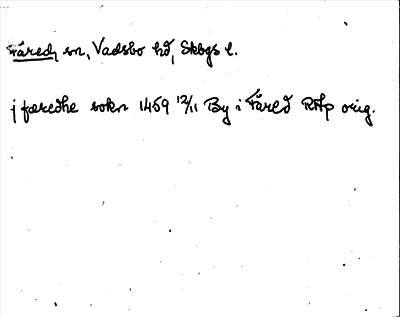 Fåred, sn, Vadsbo hd, Skbgs l.
j færedhe sokn 1459 12/11 By i Fåred RAp orig.